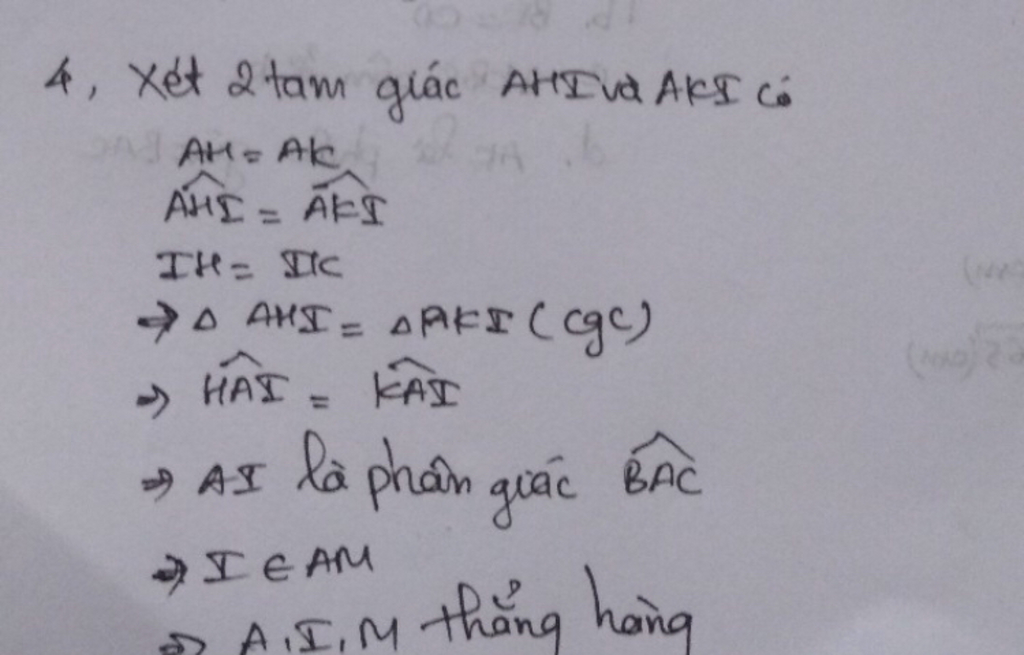 4, Xét 2 tam giác AHI và AKI có
AH = AK
\widehat{AHI} = \widehat{AKI}
IH = IK
⇒ △ AHI = △AKI (cgc)
⇒ \widehat{HAI} = \widehat{KAI}
⇒ AI là phân giác \widehat{BAC}
⇒ I ∈ AM
⇒ A, I, M thẳng hàng